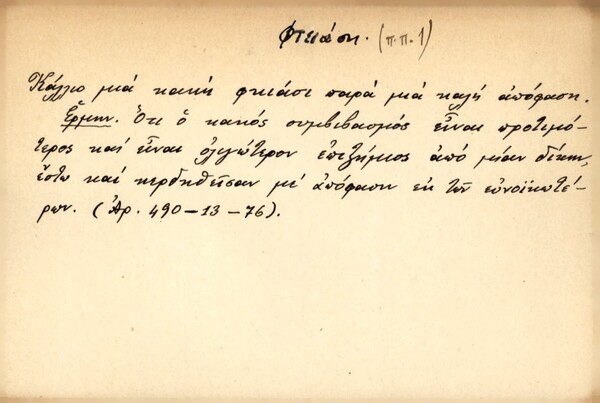 φτιάση. (π.π. 1)
Κάλλιο μιά κακή φτιάσι παρά μιά καλή ἀπόφαση.
Ἑρμην. Ὅτι ὁ κακός συμβιβασμός εἶναι προτιμό-
τερος καί εἶναι ὀλιγώτερον ἐπιζήμιος ἀπό μίαν δίκην,
ἔστω καί κερδηθεῖσαν μέ ἀπόφασιν ἐκ τῶν εὐνοϊκωτέ-
ρων. (Ἀρ. 490-13-76).